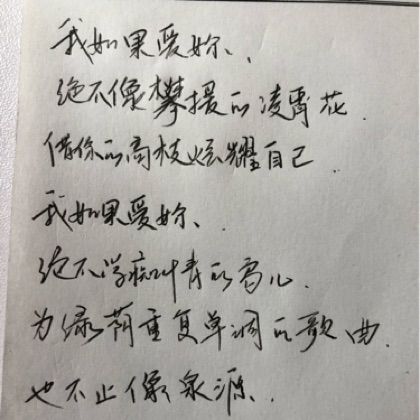 我如果爱妳、.
绝不像攀援的凌霄花.
借你的高枝炫耀自己.
我如果爱妳、
绝不学痴叫青的鸟儿.
为绿荫重复单调的歌曲.
也不止像泉源、